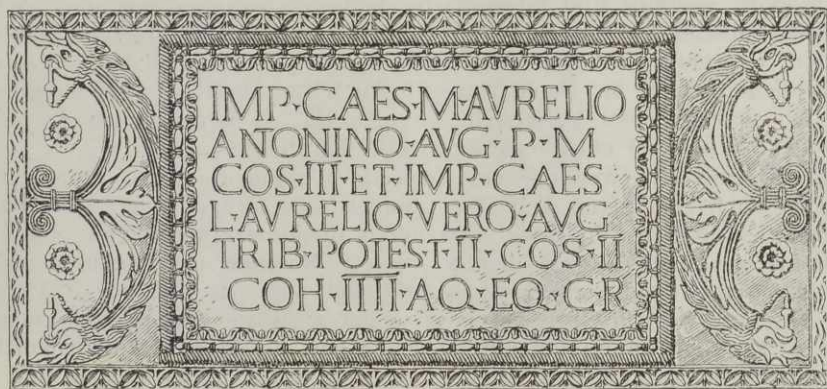 IMP·CAES·M·AVRELIO
ANTONINO·AVG·P·M
COS·III·ET·IMP·CAES
L·AVRELIO·VERO·AVG
TRIB·POTEST·II·COS·II
COH·IIII·AQ·EQ·C·R